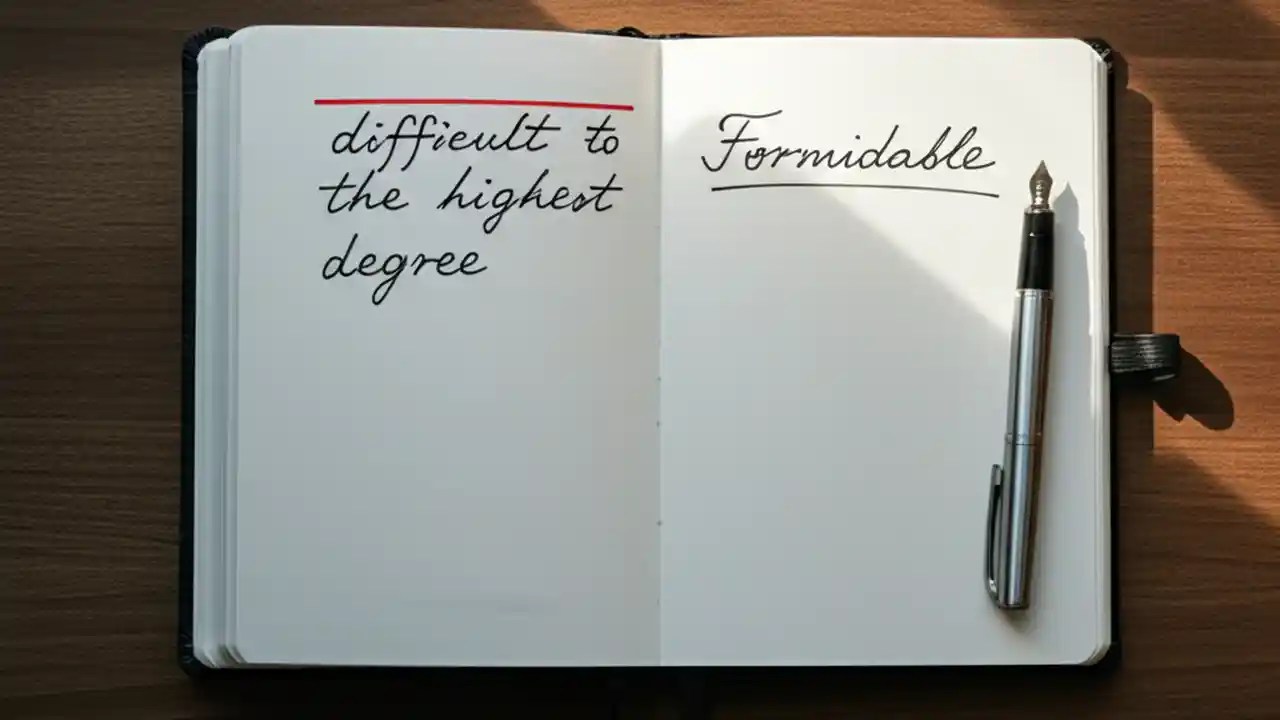 difficult to
the highest
degree
Formidable